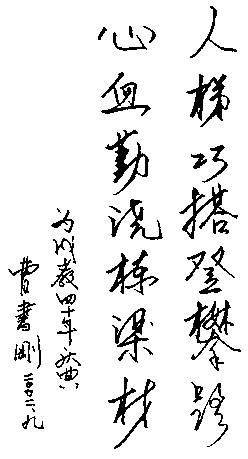 人梯巧搭登攀路
心血勤浇栋梁材
为成教四十年庆典
曹书刚二〇〇二、九